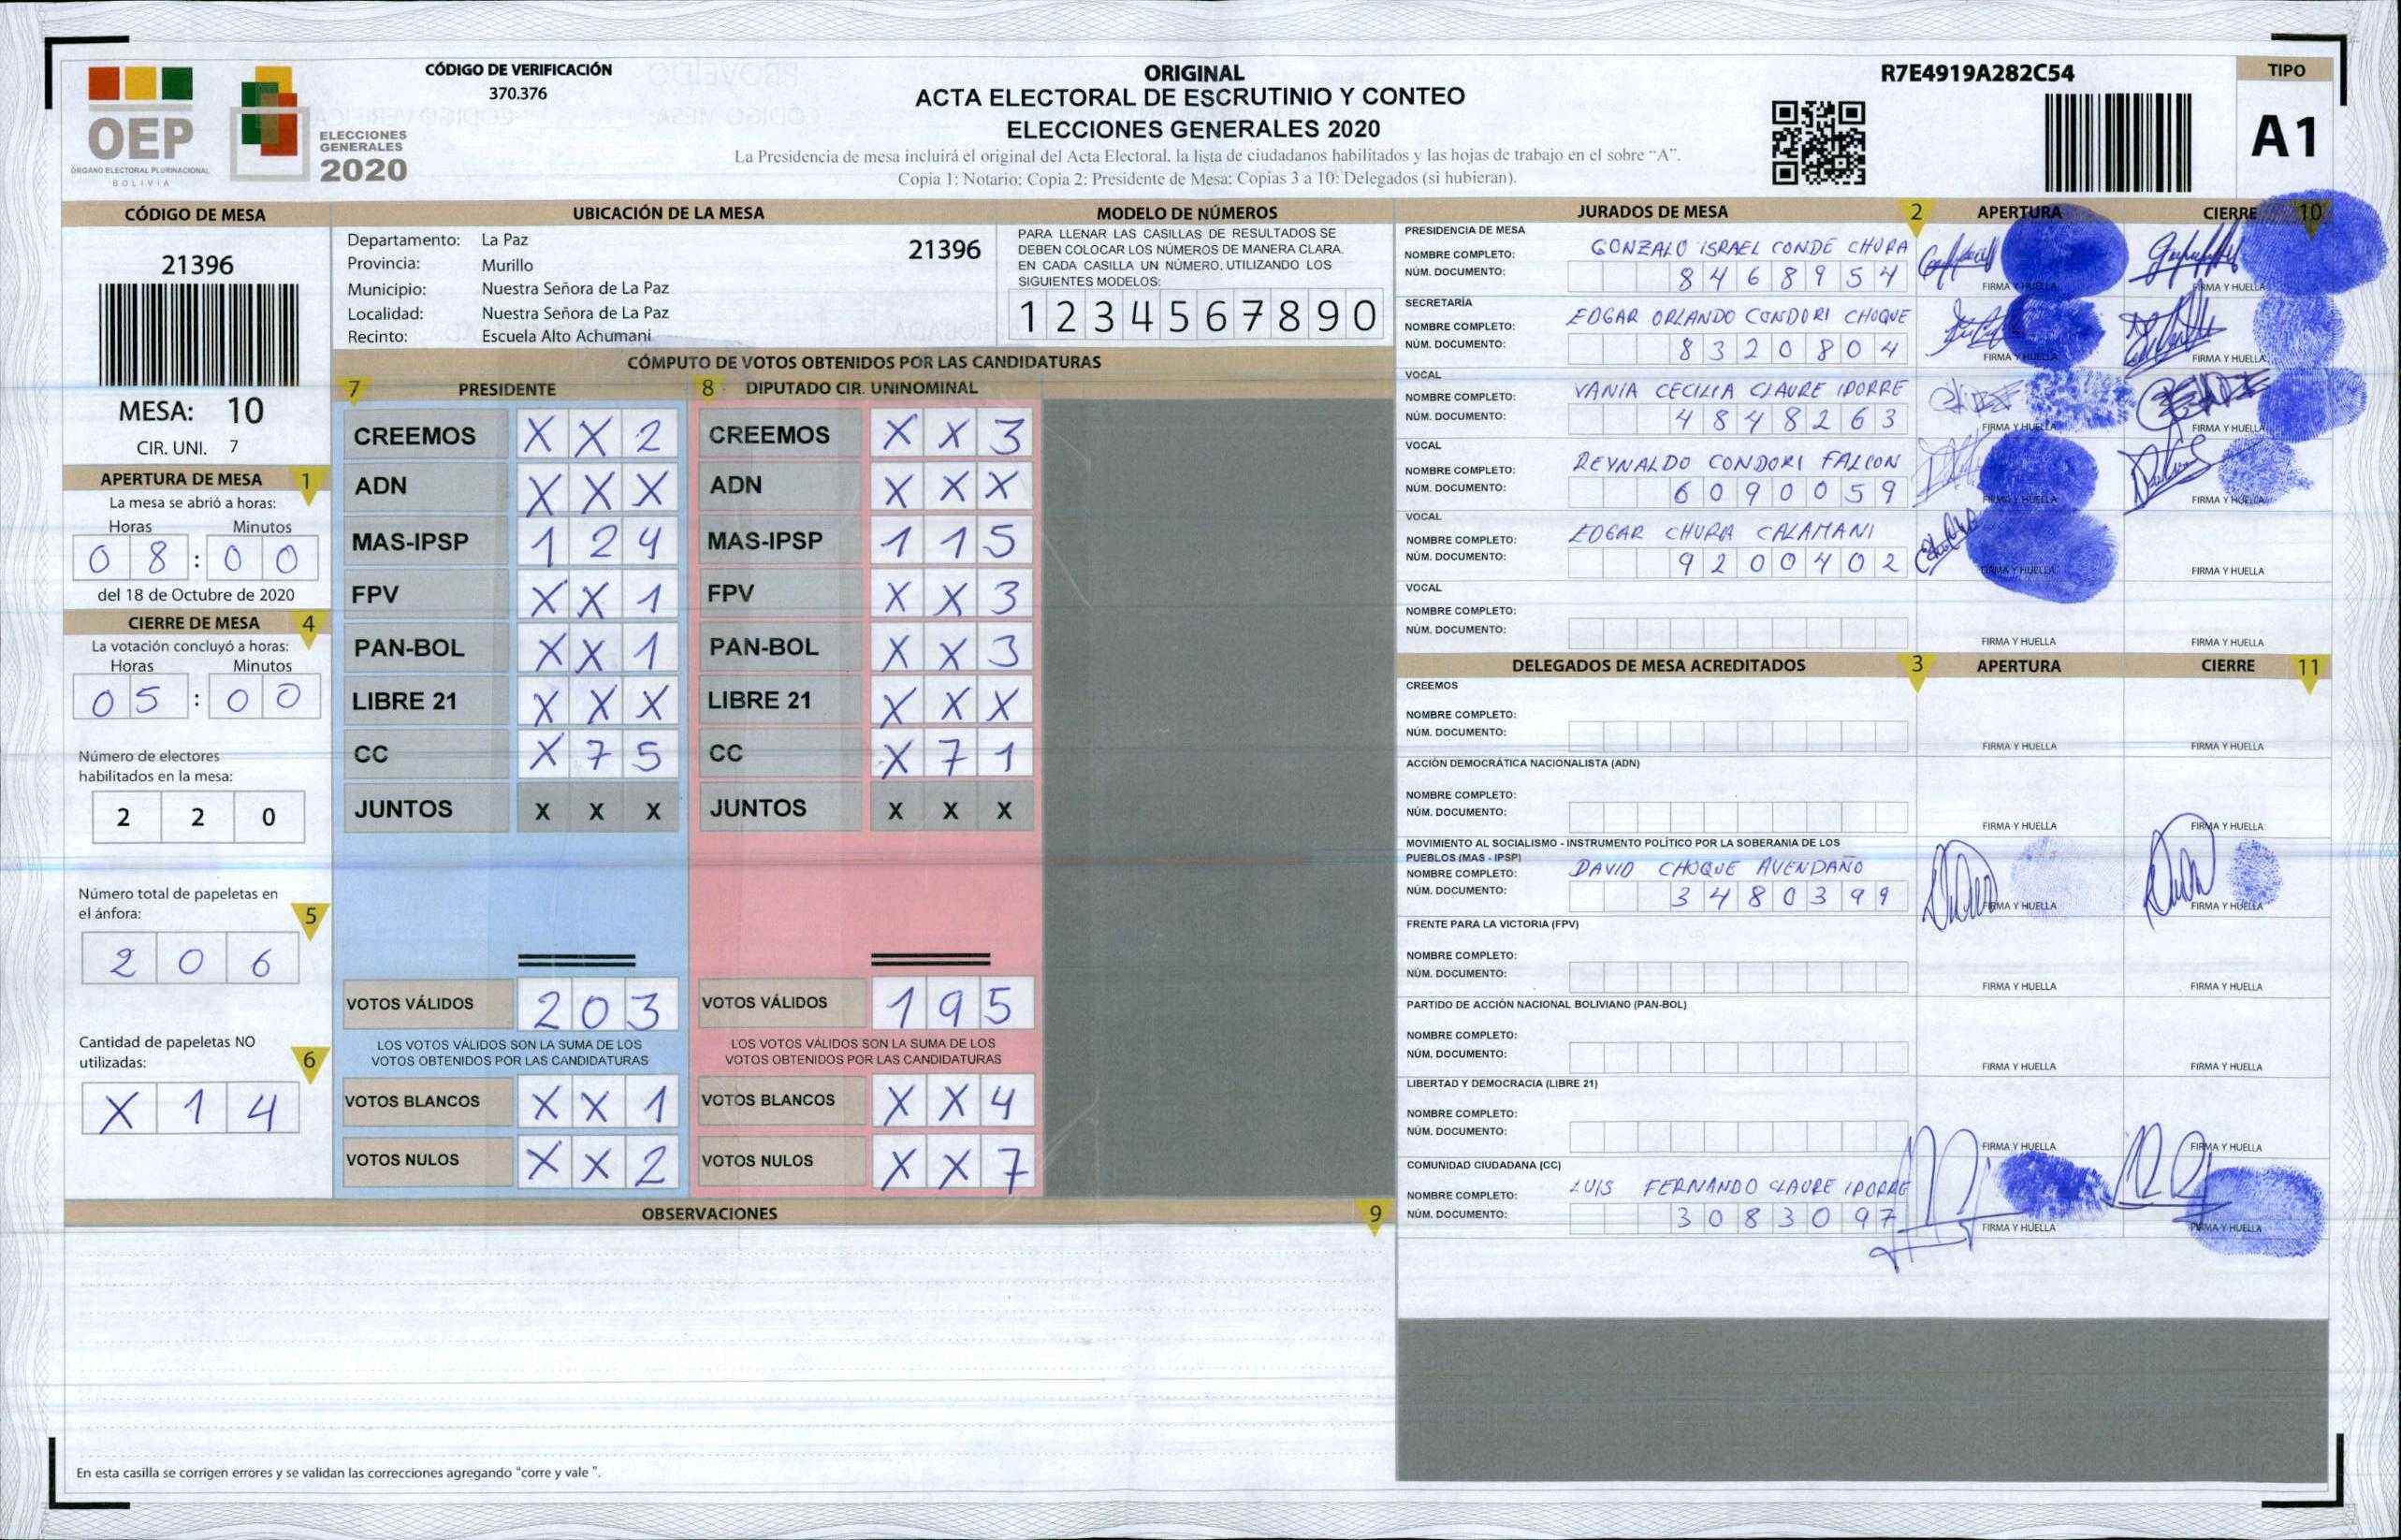 OEP
ÓRGANO ELECTORAL PLURINACIONAL
BOLIVIA
ELECCIONES
GENERALES
2020
CÓDIGO DE VERIFICACIÓN
370.376
ORIGINAL
ACTA ELECTORAL DE ESCRUTINIO Y CONTEO
ELECCIONES GENERALES 2020
La Presidencia de mesa incluirá el original del Acta Electoral, la lista de ciudadanos habilitados y las hojas de trabajo en el sobre "A".
Copia 1: Notario; Copia 2: Presidente de Mesa; Copias 3 a 10: Delegados (si hubieran).
R7E4919A282C54
TIPO
A1
CÓDIGO DE MESA
21396
MESA: 10
CIR. UNI. 7
APERTURA DE MESA 1
La mesa se abrió a horas:
Horas Minutos
0 8 : 0 0
del 18 de Octubre de 2020
CIERRE DE MESA 4
La votación concluyó a horas:
Horas Minutos
0 5 : 0 0
Número de electores
habilitados en la mesa:
2 2 0
Número total de papeletas en
el ánfora: 5
2 0 6
Cantidad de papeletas NO
utilizadas: 6
X 1 4
UBICACIÓN DE LA MESA
Departamento: La Paz 21396
Provincia: Murillo
Municipio: Nuestra Señora de La Paz
Localidad: Nuestra Señora de La Paz
Recinto: Escuela Alto Achumani
MODELO DE NÚMEROS
PARA LLENAR LAS CASILLAS DE RESULTADOS SE
DEBEN COLOCAR LOS NÚMEROS DE MANERA CLARA.
EN CADA CASILLA UN NÚMERO, UTILIZANDO LOS
SIGUIENTES MODELOS:
1 2 3 4 5 6 7 8 9 0
CÓMPUTO DE VOTOS OBTENIDOS POR LAS CANDIDATURAS
7 PRESIDENTE 8 DIPUTADO CIR. UNINOMINAL
CREEMOS X X 2 CREEMOS X X 3
ADN X X X ADN X X X
MAS-IPSP 1 2 4 MAS-IPSP 1 1 5
FPV X X 1 FPV X X 3
PAN-BOL X X 1 PAN-BOL X X 3
LIBRE 21 X X X LIBRE 21 X X X
CC X 7 5 CC X 7 1
JUNTOS X X X JUNTOS X X X
VOTOS VÁLIDOS 2 0 3 VOTOS VÁLIDOS 1 9 5
LOS VOTOS VÁLIDOS SON LA SUMA DE LOS LOS VOTOS VÁLIDOS SON LA SUMA DE LOS
VOTOS OBTENIDOS POR LAS CANDIDATURAS VOTOS OBTENIDOS POR LAS CANDIDATURAS
VOTOS BLANCOS X X 1 VOTOS BLANCOS X X 4
VOTOS NULOS X X 2 VOTOS NULOS X X 7
OBSERVACIONES 9
En esta casilla se corrigen errores y se validan las correcciones agregando "corre y vale ".
JURADOS DE MESA 2 APERTURA CIERRE 10
PRESIDENCIA DE MESA
NOMBRE COMPLETO: GONZALO ISRAEL CONDE CHURA
NÚM. DOCUMENTO: 8 4 6 8 9 5 4
FIRMA Y HUELLA FIRMA Y HUELLA
SECRETARÍA
NOMBRE COMPLETO: EDGAR ORLANDO CONDORI CHOQUE
NÚM. DOCUMENTO: 8 3 2 0 8 0 4
FIRMA Y HUELLA FIRMA Y HUELLA
VOCAL
NOMBRE COMPLETO: VANIA CECILIA CLAURE IPORRE
NÚM. DOCUMENTO: 4 8 4 8 2 6 3
FIRMA Y HUELLA FIRMA Y HUELLA
VOCAL
NOMBRE COMPLETO: REYNALDO CONDORI FALCON
NÚM. DOCUMENTO: 6 0 9 0 0 5 9
FIRMA Y HUELLA FIRMA Y HUELLA
VOCAL
NOMBRE COMPLETO: EDGAR CHURA CALAMANI
NÚM. DOCUMENTO: 9 2 0 0 4 0 2
FIRMA Y HUELLA FIRMA Y HUELLA
VOCAL
NOMBRE COMPLETO:
NÚM. DOCUMENTO:
FIRMA Y HUELLA FIRMA Y HUELLA
DELEGADOS DE MESA ACREDITADOS 3 APERTURA CIERRE 11
CREEMOS
NOMBRE COMPLETO:
NÚM. DOCUMENTO:
FIRMA Y HUELLA FIRMA Y HUELLA
ACCIÓN DEMOCRÁTICA NACIONALISTA (ADN)
NOMBRE COMPLETO:
NÚM. DOCUMENTO:
FIRMA Y HUELLA FIRMA Y HUELLA
MOVIMIENTO AL SOCIALISMO - INSTRUMENTO POLÍTICO POR LA SOBERANIA DE LOS
PUEBLOS (MAS - IPSP)
NOMBRE COMPLETO: DAVID CHOQUE AVENDAÑO
NÚM. DOCUMENTO: 3 4 8 0 3 9 9
FIRMA Y HUELLA FIRMA Y HUELLA
FRENTE PARA LA VICTORIA (FPV)
NOMBRE COMPLETO:
NÚM. DOCUMENTO:
FIRMA Y HUELLA FIRMA Y HUELLA
PARTIDO DE ACCIÓN NACIONAL BOLIVIANO (PAN-BOL)
NOMBRE COMPLETO:
NÚM. DOCUMENTO:
FIRMA Y HUELLA FIRMA Y HUELLA
LIBERTAD Y DEMOCRACIA (LIBRE 21)
NOMBRE COMPLETO:
NÚM. DOCUMENTO:
FIRMA Y HUELLA FIRMA Y HUELLA
COMUNIDAD CIUDADANA (CC)
NOMBRE COMPLETO: LUIS FERNANDO CLAURE IPORRE
NÚM. DOCUMENTO: 3 0 8 3 0 9 7
FIRMA Y HUELLA FIRMA Y HUELLA